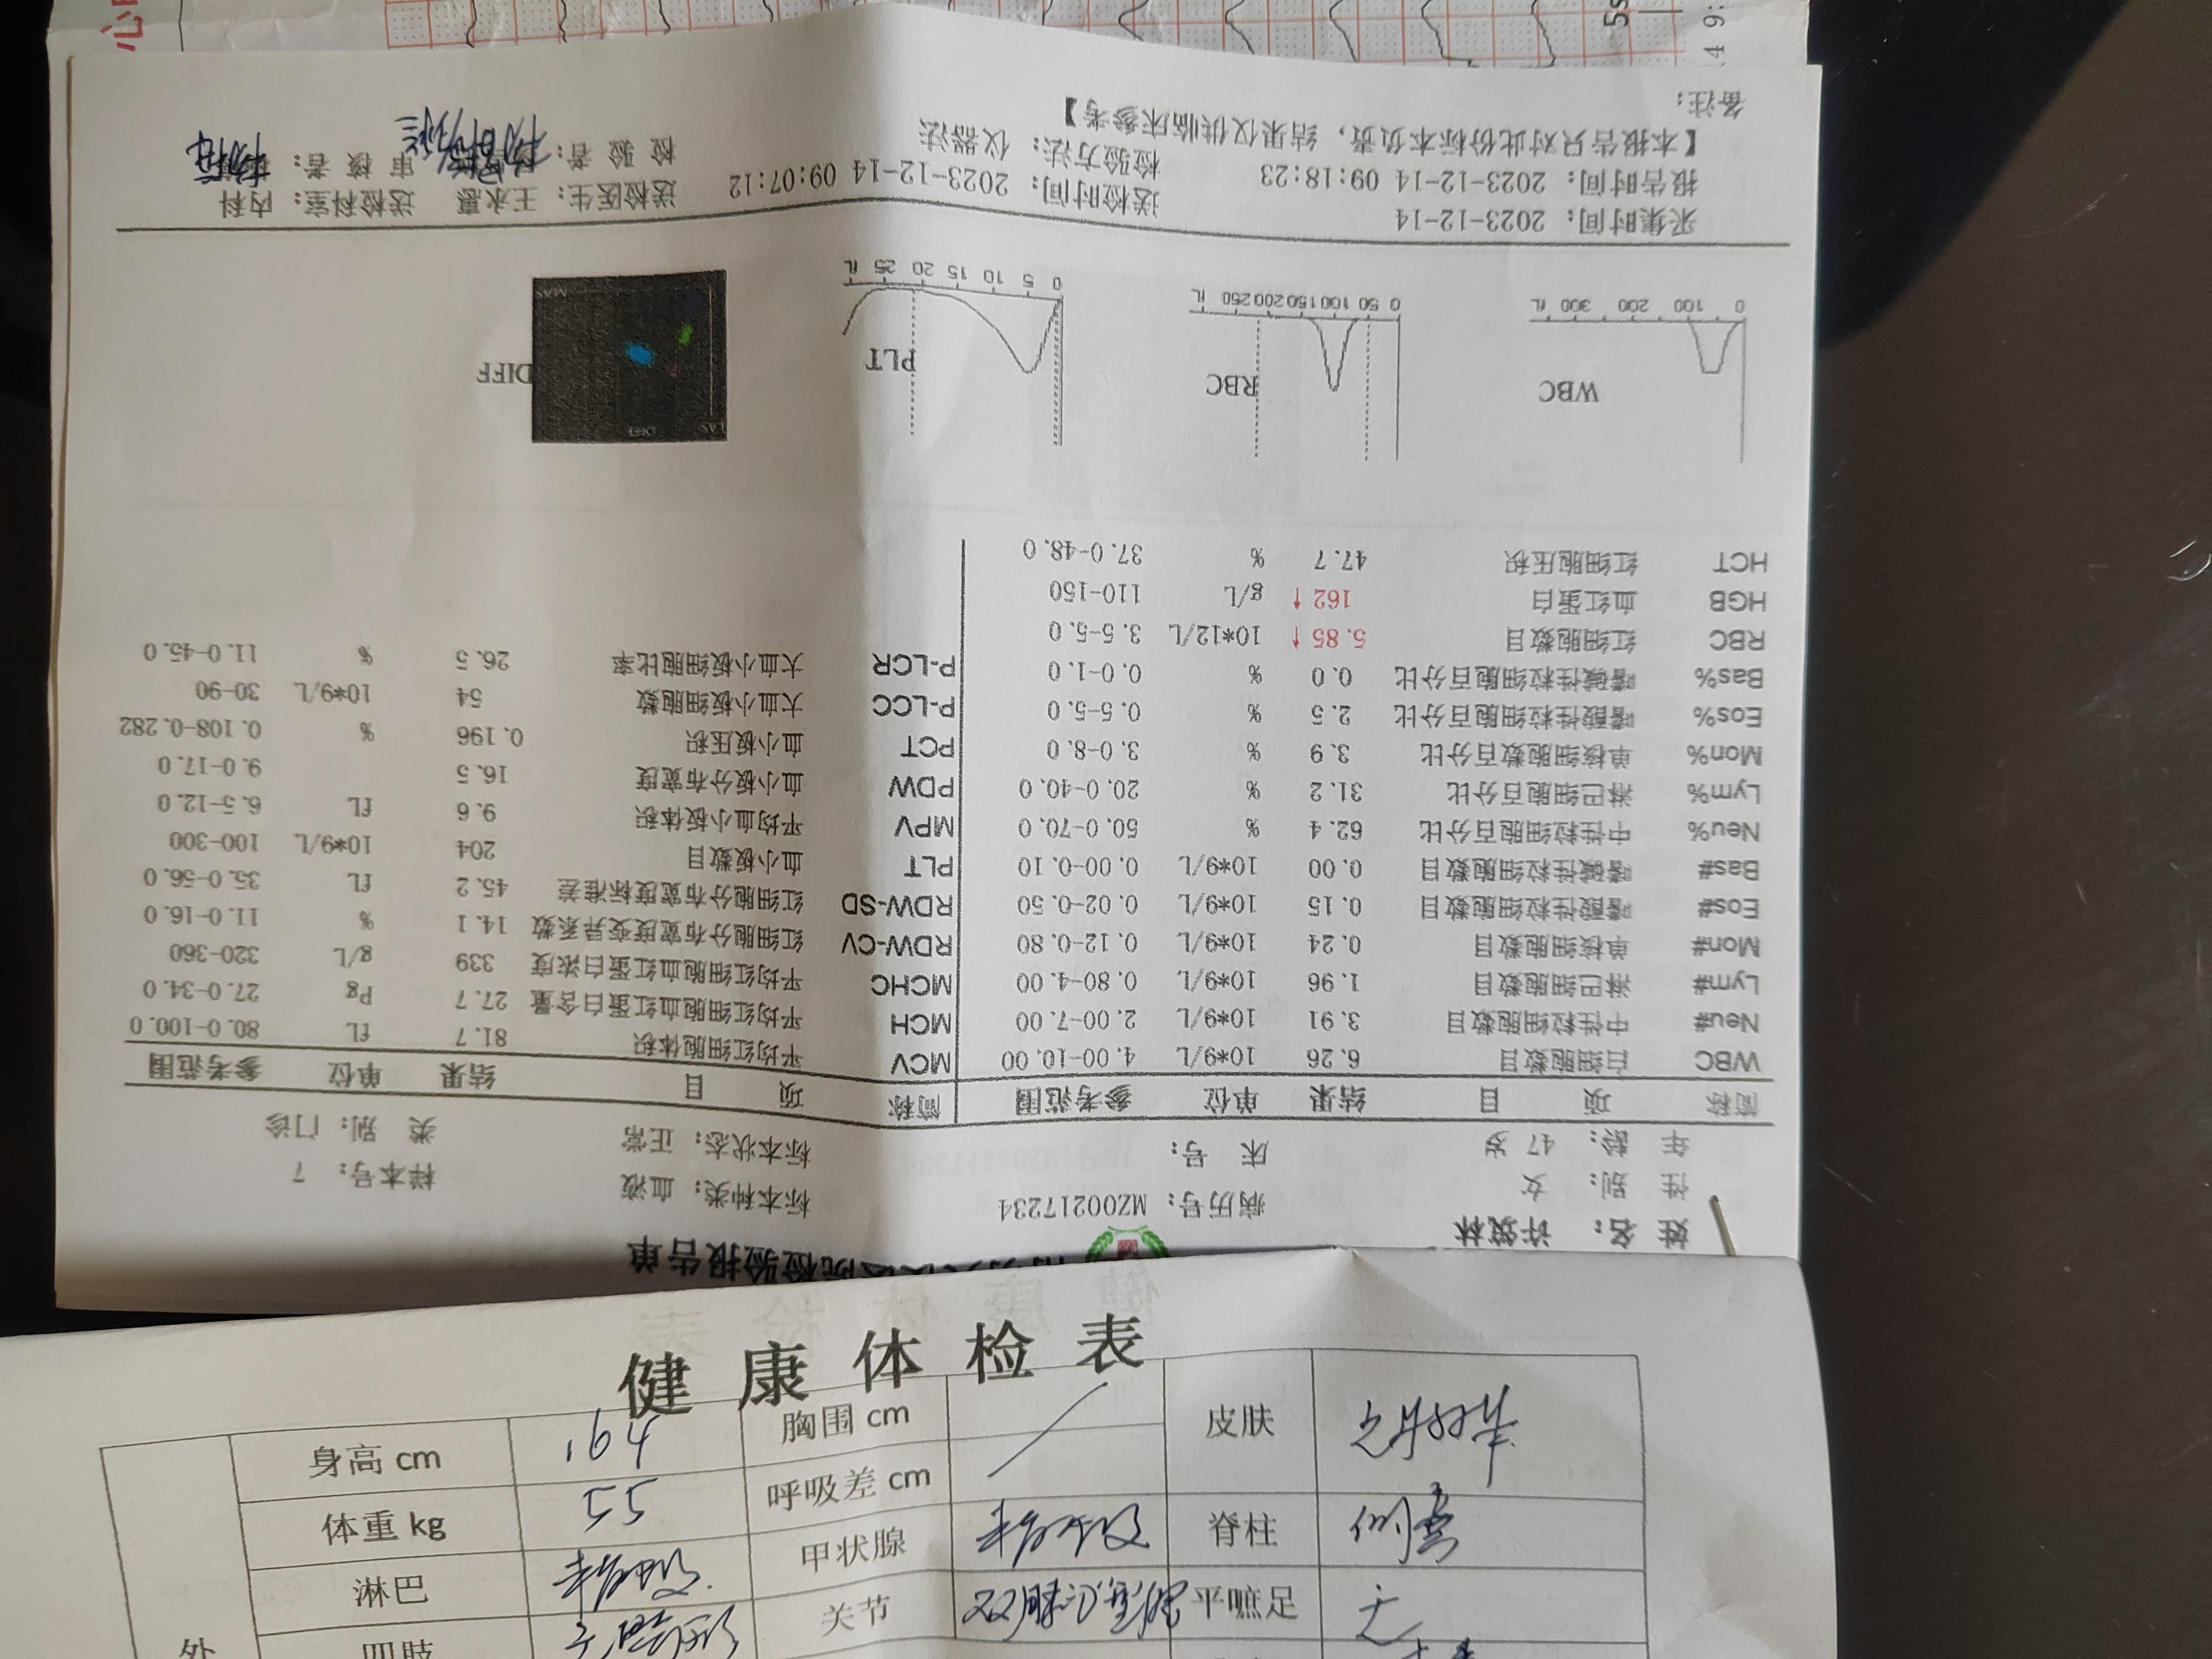 检验报告单
姓 名： 许筑林 病历号： MZ00217234 标本种类： 血液 样本号： 7
性 别： 女 床 号： 标本状态： 正常 类 别： 门诊
年 龄： 47 岁
简称 项 目 结果 单位 参考范围 简称 项 目 结果 单位 参考范围
WBC 白细胞数目 6.26 10*9/L 4.00-10.00 MCV 平均红细胞体积 81.7 fL 80.0-100.0
Neu# 中性粒细胞数目 3.91 10*9/L 2.00-7.00 MCH 平均红细胞血红蛋白含量 27.7 Pg 27.0-34.0
Lym# 淋巴细胞数目 1.96 10*9/L 0.80-4.00 MCHC 平均红细胞血红蛋白浓度 339 g/L 320-360
Mon# 单核细胞数目 0.24 10*9/L 0.12-0.80 RDW-CV 红细胞分布宽度变异系数 14.1 % 11.0-16.0
Eos# 嗜酸性粒细胞数目 0.15 10*9/L 0.02-0.50 RDW-SD 红细胞分布宽度标准差 45.2 fL 35.0-56.0
Bas# 嗜碱性粒细胞数目 0.00 10*9/L 0.00-0.10 PLT 血小板数目 204 10*9/L 100-300
Neu% 中性粒细胞百分比 62.4 % 50.0-70.0 MPV 平均血小板体积 9.6 fL 6.5-12.0
Lym% 淋巴细胞百分比 31.2 % 20.0-40.0 PDW 血小板分布宽度 16.5 9.0-17.0
Mon% 单核细胞数百分比 3.9 % 3.0-8.0 PCT 血小板压积 0.196 % 0.108-0.282
Eos% 嗜酸性粒细胞百分比 2.5 % 0.5-5.0 P-LCC 大血小板细胞数 54 10*9/L 30-90
Bas% 嗜碱性粒细胞百分比 0.0 % 0.0-1.0 P-LCR 大血小板细胞比率 26.5 % 11.0-45.0
RBC 红细胞数目 5.85 ↑ 10*12/L 3.5-5.5.0
HGB 血红蛋白 162 ↑ g/L 110-150
HCT 红细胞压积 47.7 % 37.0-48.0
WBC RBC PLT DIFF
0 100 200 300 fL 0 50 100 150 200 250 fL 0 5 10 15 20 25 fL
采集时间： 2023-12-14 送检时间： 2023-12-14 09:07:12 送检医生： 王永惠 送检科室： 内科
报告时间： 2023-12-14 09:18:23 检验方法： 仪器法 检 验 者： 审 核 者：
【本报告只对此份标本负责，结果仅供临床参考】
备注：
健 康 体 检 表
身高 cm 164 胸围 cm 皮肤
体重 kg 55 呼吸差 cm
淋巴 甲状腺 脊柱 侧弯
四肢 关节 平蹠足 无
外